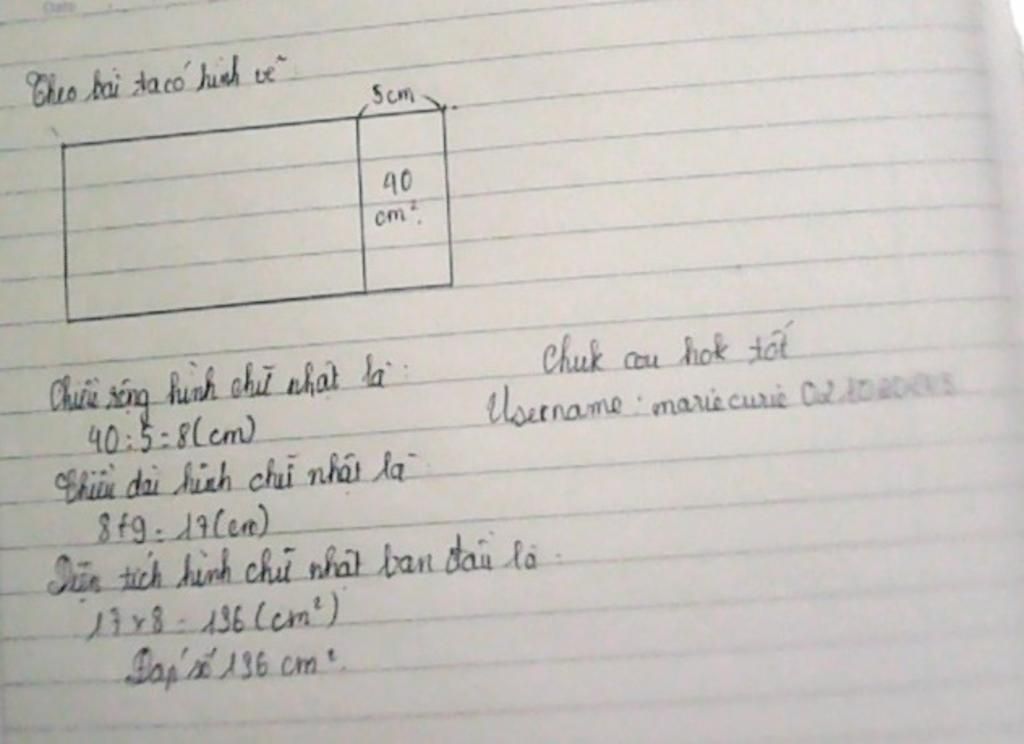 Date
Theo bài ta có hình vẽ
5cm
40
cm².
Chiều rộng hình chữ nhật là:
40:5=8(cm)
Chiều dài hình chữ nhật là
8+9=17(cm)
Diện tích hình chữ nhật ban đầu là:
17x8=136(cm²)
Đáp số 136 cm².
Chuk cau hok tốt
Username: mariecurie